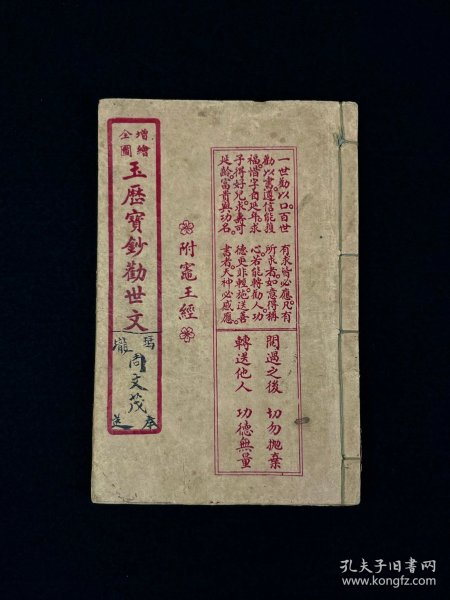 一世勸以口。百世
勸以書。遵信能獲
福。惜字自延年。求
子得好兒。求壽可
延齡。富貴與功名。
有求皆必應。凡有
所求者。如意得稱
心。若能轉勸人。功
德更非輕。施送善
書者。天神必感應。
閱過之後 切勿拋棄
轉送他人 功德無量
附竈王經
增繪全圖
玉歷寶鈔勸世文
周文茂
奉送
孔夫子旧书网
www.kongfz.com